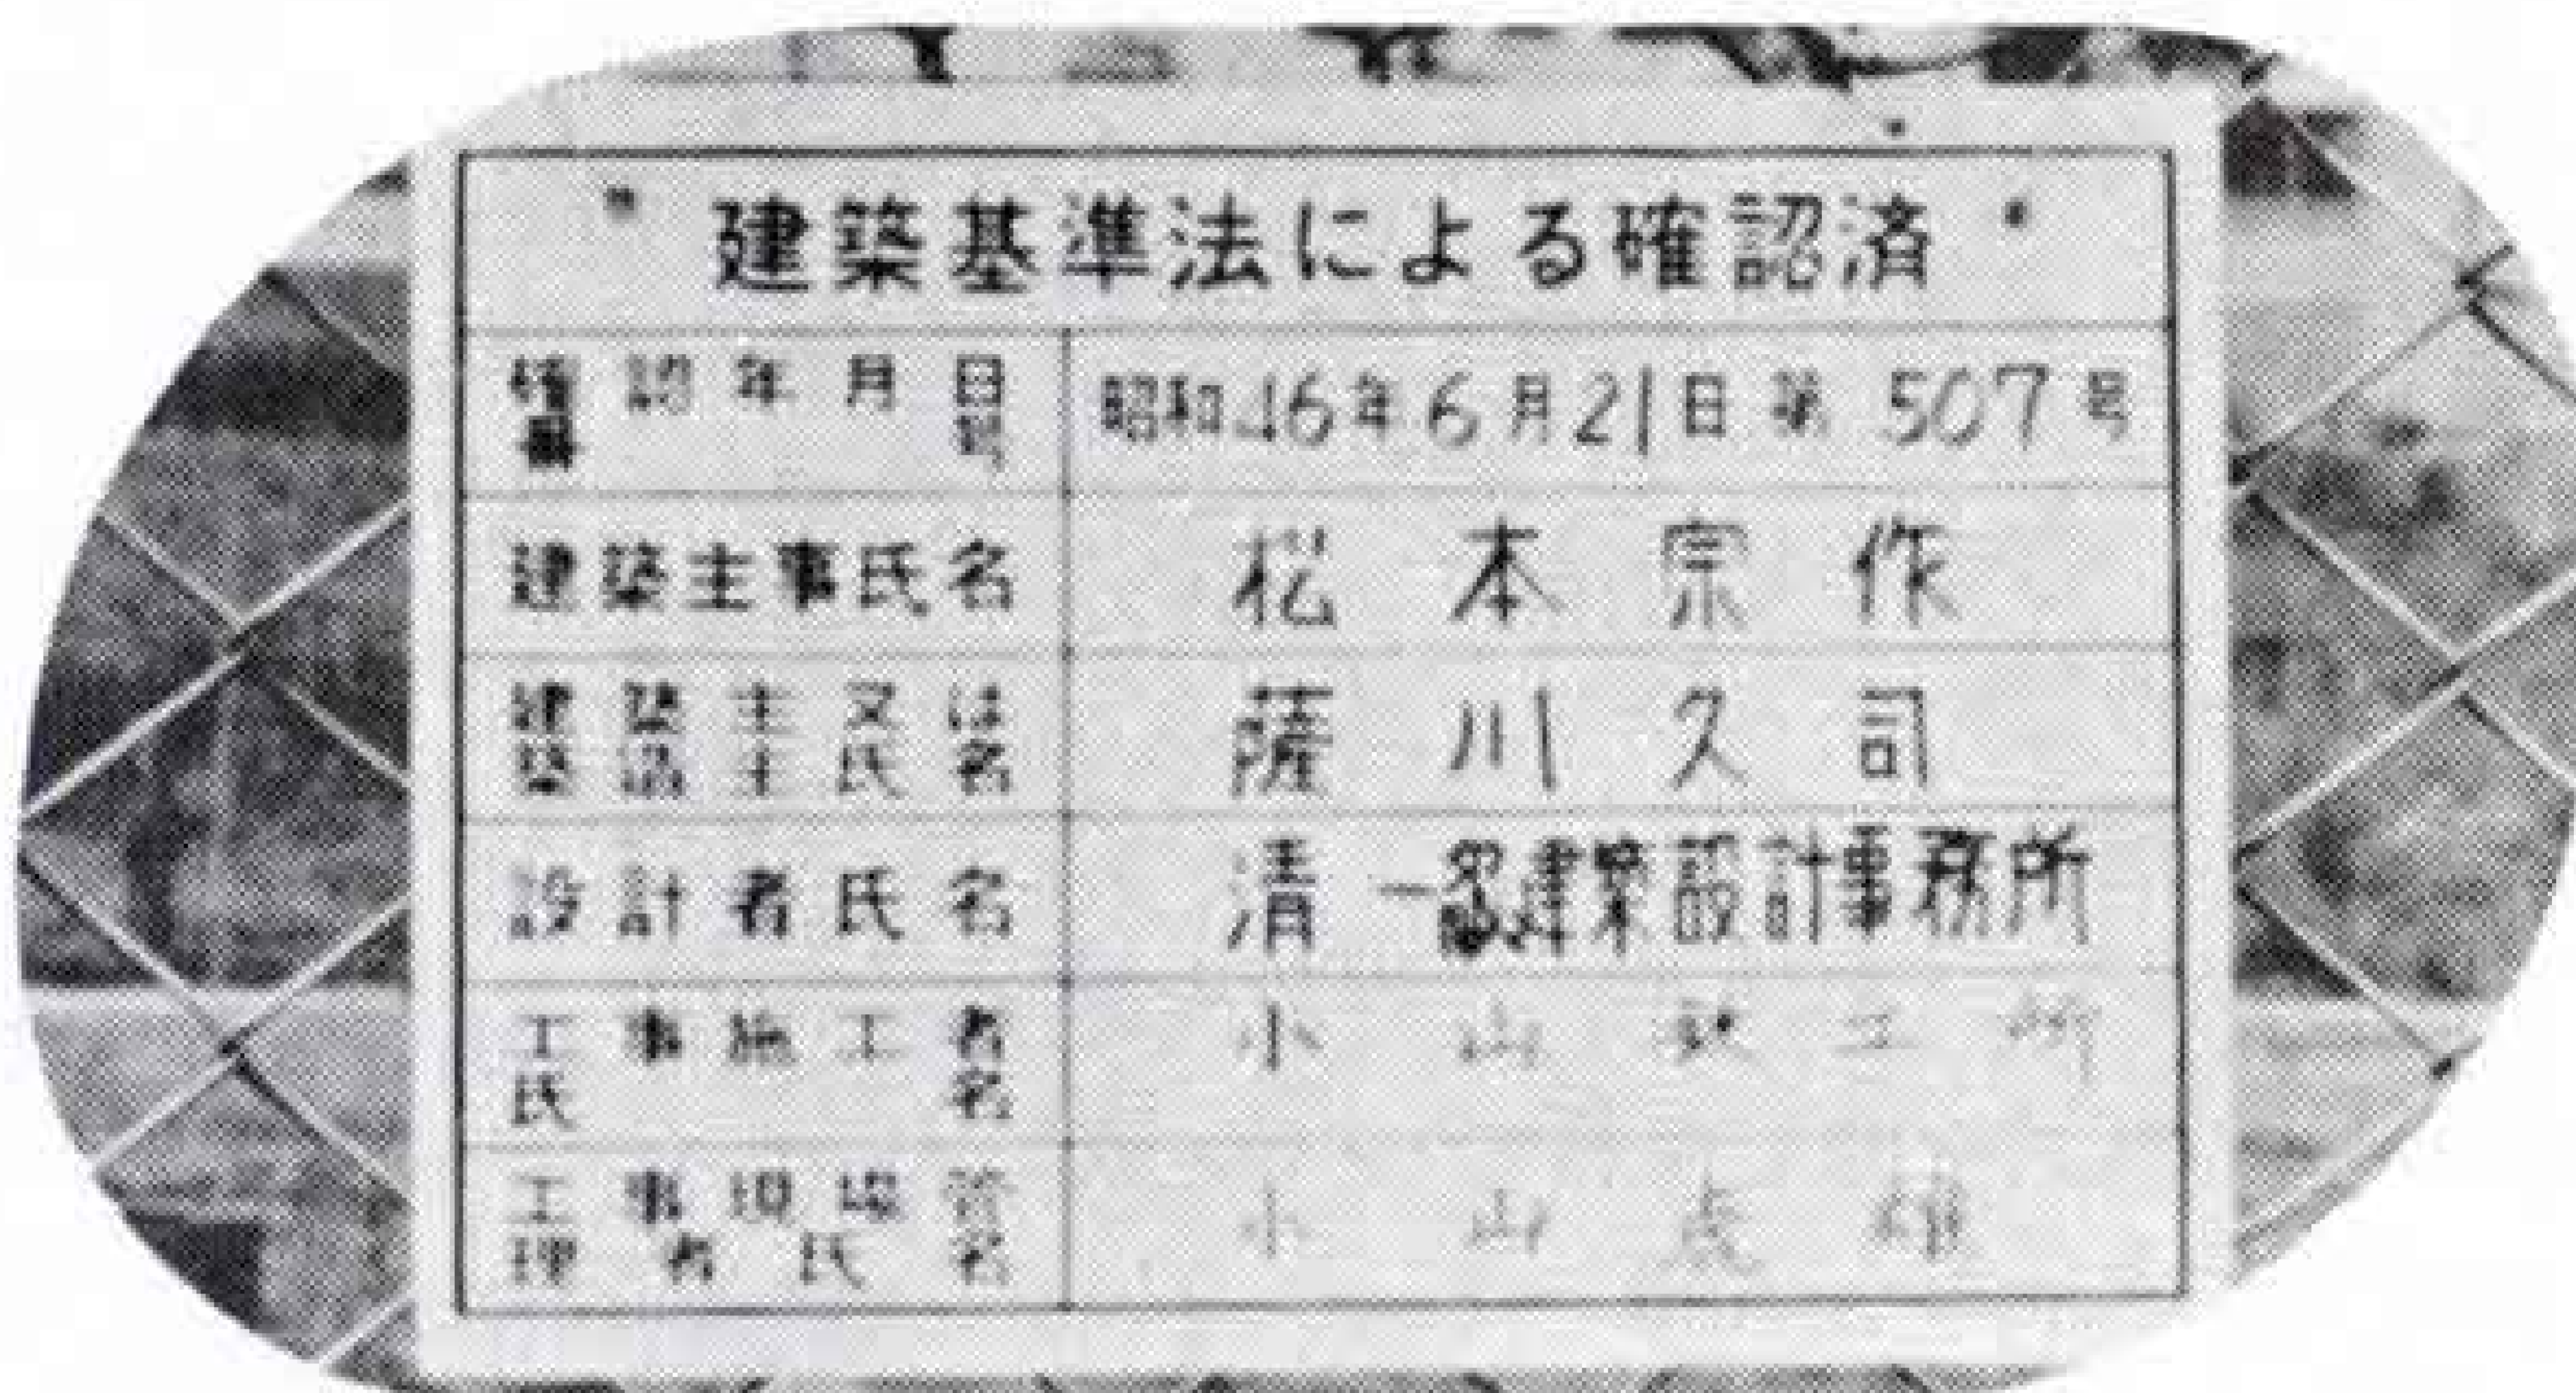 建築基準法による確認済
確認年月日
番号
昭和46年6月21日第507号
建築主事氏名
松本宗作
建築主又は
築造主氏名
薩川久司
設計者氏名
清一級建築設計事務所
工事施工者
氏名
小山鉄工所
工事現場管
理者氏名
小山